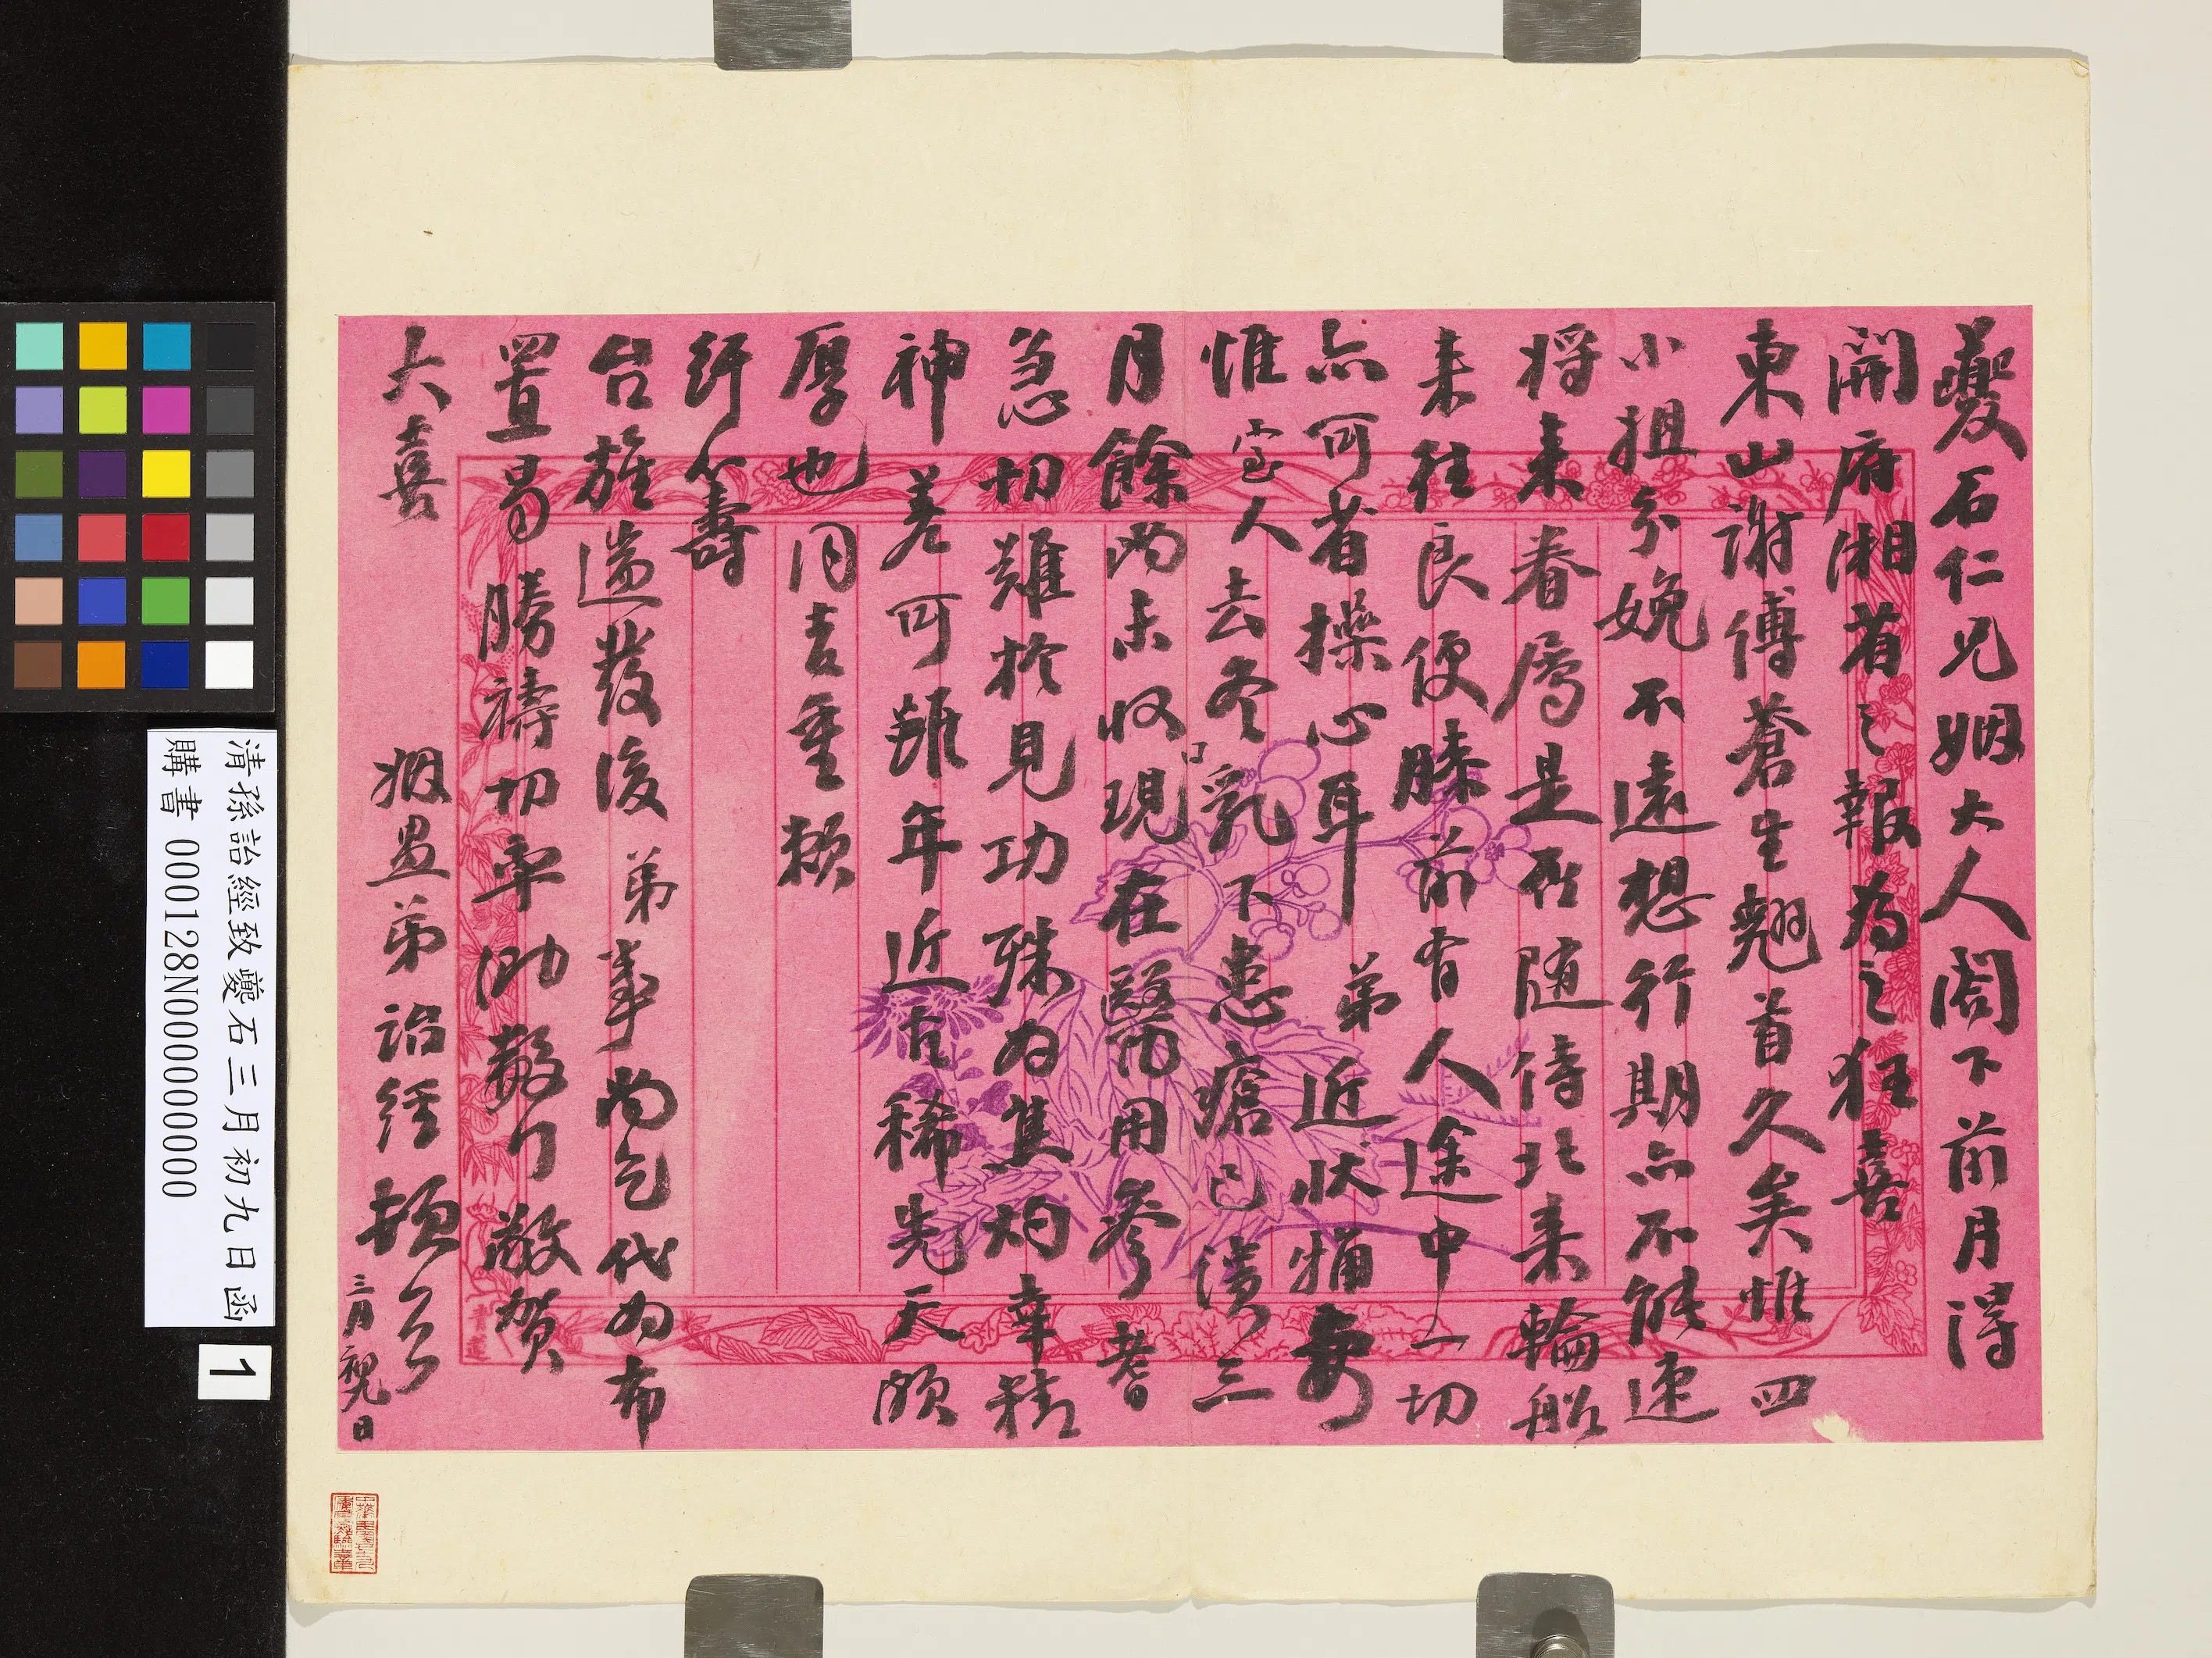 夔石仁兄姻大人閣下前月得
開府湘省之報為之狂喜
東山謝傅蒼生翹首久矣惟四
小姐分娩不遠想行期亦不能速
将來眷屬是否随侍北來輪船
來往良便膝前有人途中一切
亦可省操心耳弟近狀猶安
惟室人去冬乳下患瘡已潰三
月餘尚未收口現在醫用參耆
急切難於見功殊為焦灼幸精
神羌可雖年近古稀先天頗
厚也同吉重頼
纡籌
台旌遄發後弟事尚乞代為布
置曷勝禱切率泐敬叩敬賀
大喜
姻愚弟詒經頓首
三月初九日
清孫詒經致夔石三月初九日函
購書 0000128N000000000
1